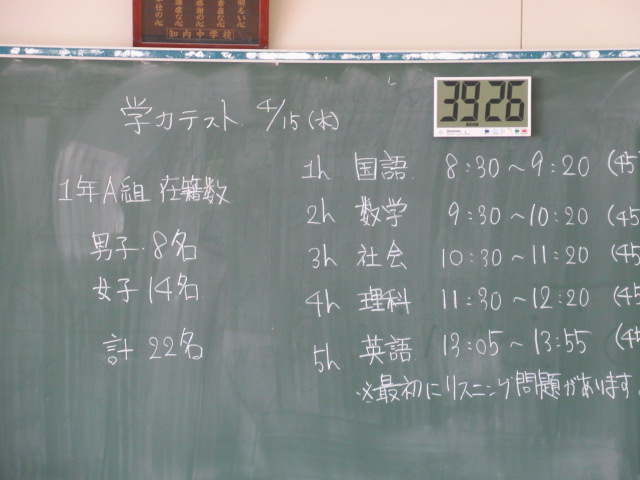 明るい心
素直な心
感謝の心
謙虚な心
奉仕の心
知内中学校
39 26
学力テスト 4/15(水)
1年A組 在籍数
男子 8名
女子 14名
計 22名
1h 国語 8:30～9:20 (45
2h 数学 9:30～10:20 (45
3h 社会 10:30～11:20 (45
4h 理科 11:30～12:20 (45
5h 英語 13:05～13:55 (45
※最初にリスニング問題があります。